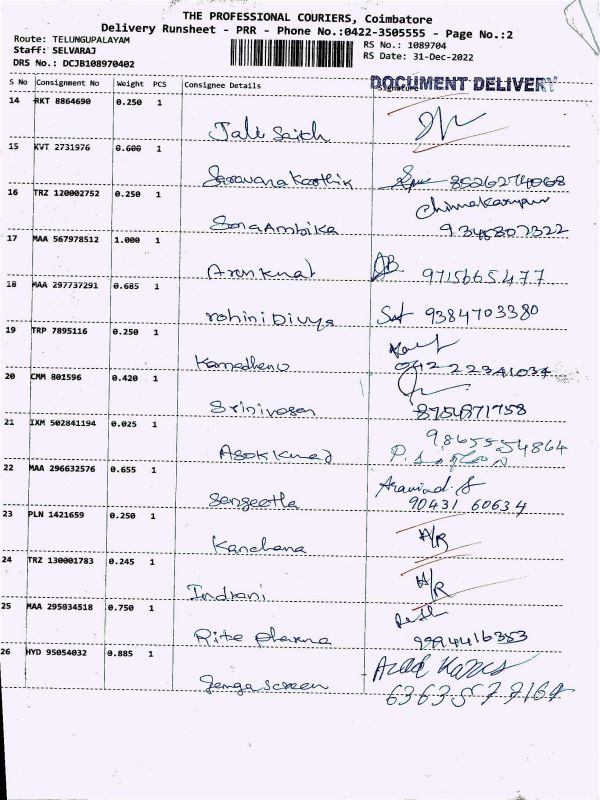 THE PROFESSIONAL COURIERS, Coimbatore
Delivery Runsheet - PRR - Phone No.:0422-3505555 - Page No.:2
Route: TELUNGUPALAYAM
Staff: SELVARAJ
DRS No.: DCJB108970402
RS No.: 1089704
RS Date: 31-Dec-2022
DOCUMENT DELIVERY
S No Consignment No Weight PCS Consignee Details Signature
14 RKT 8864690 0.250 1
15 KVT 2731976 0.600 1
Saravana Karthik 8526274068
16 TRZ 120002752 0.250 1
Sona Ambika 9345807322
17 MAA 567978512 1.000 1
Arun kumar 9715665477
18 MAA 297737291 0.685 1
rohini Divya 9384703380
19 TRP 7895116 0.250 1
Kamadhenu 0422 2341034
20 CMM 801596 0.420 1
Srinivasan 8754871758
21 IXM 502841194 0.025 1
9865554864
Asok Kumar
22 MAA 296632576 0.655 1
Aravind.S
Sangeetha 90431 60634
23 PLN 1421659 0.250 1
Kanchana A/R
24 TRZ 130001783 0.245 1
Indrani A/R
25 MAA 295034518 0.750 1
Rite pharma 9994416353
26 HYD 95054032 0.885 1
Genga screen